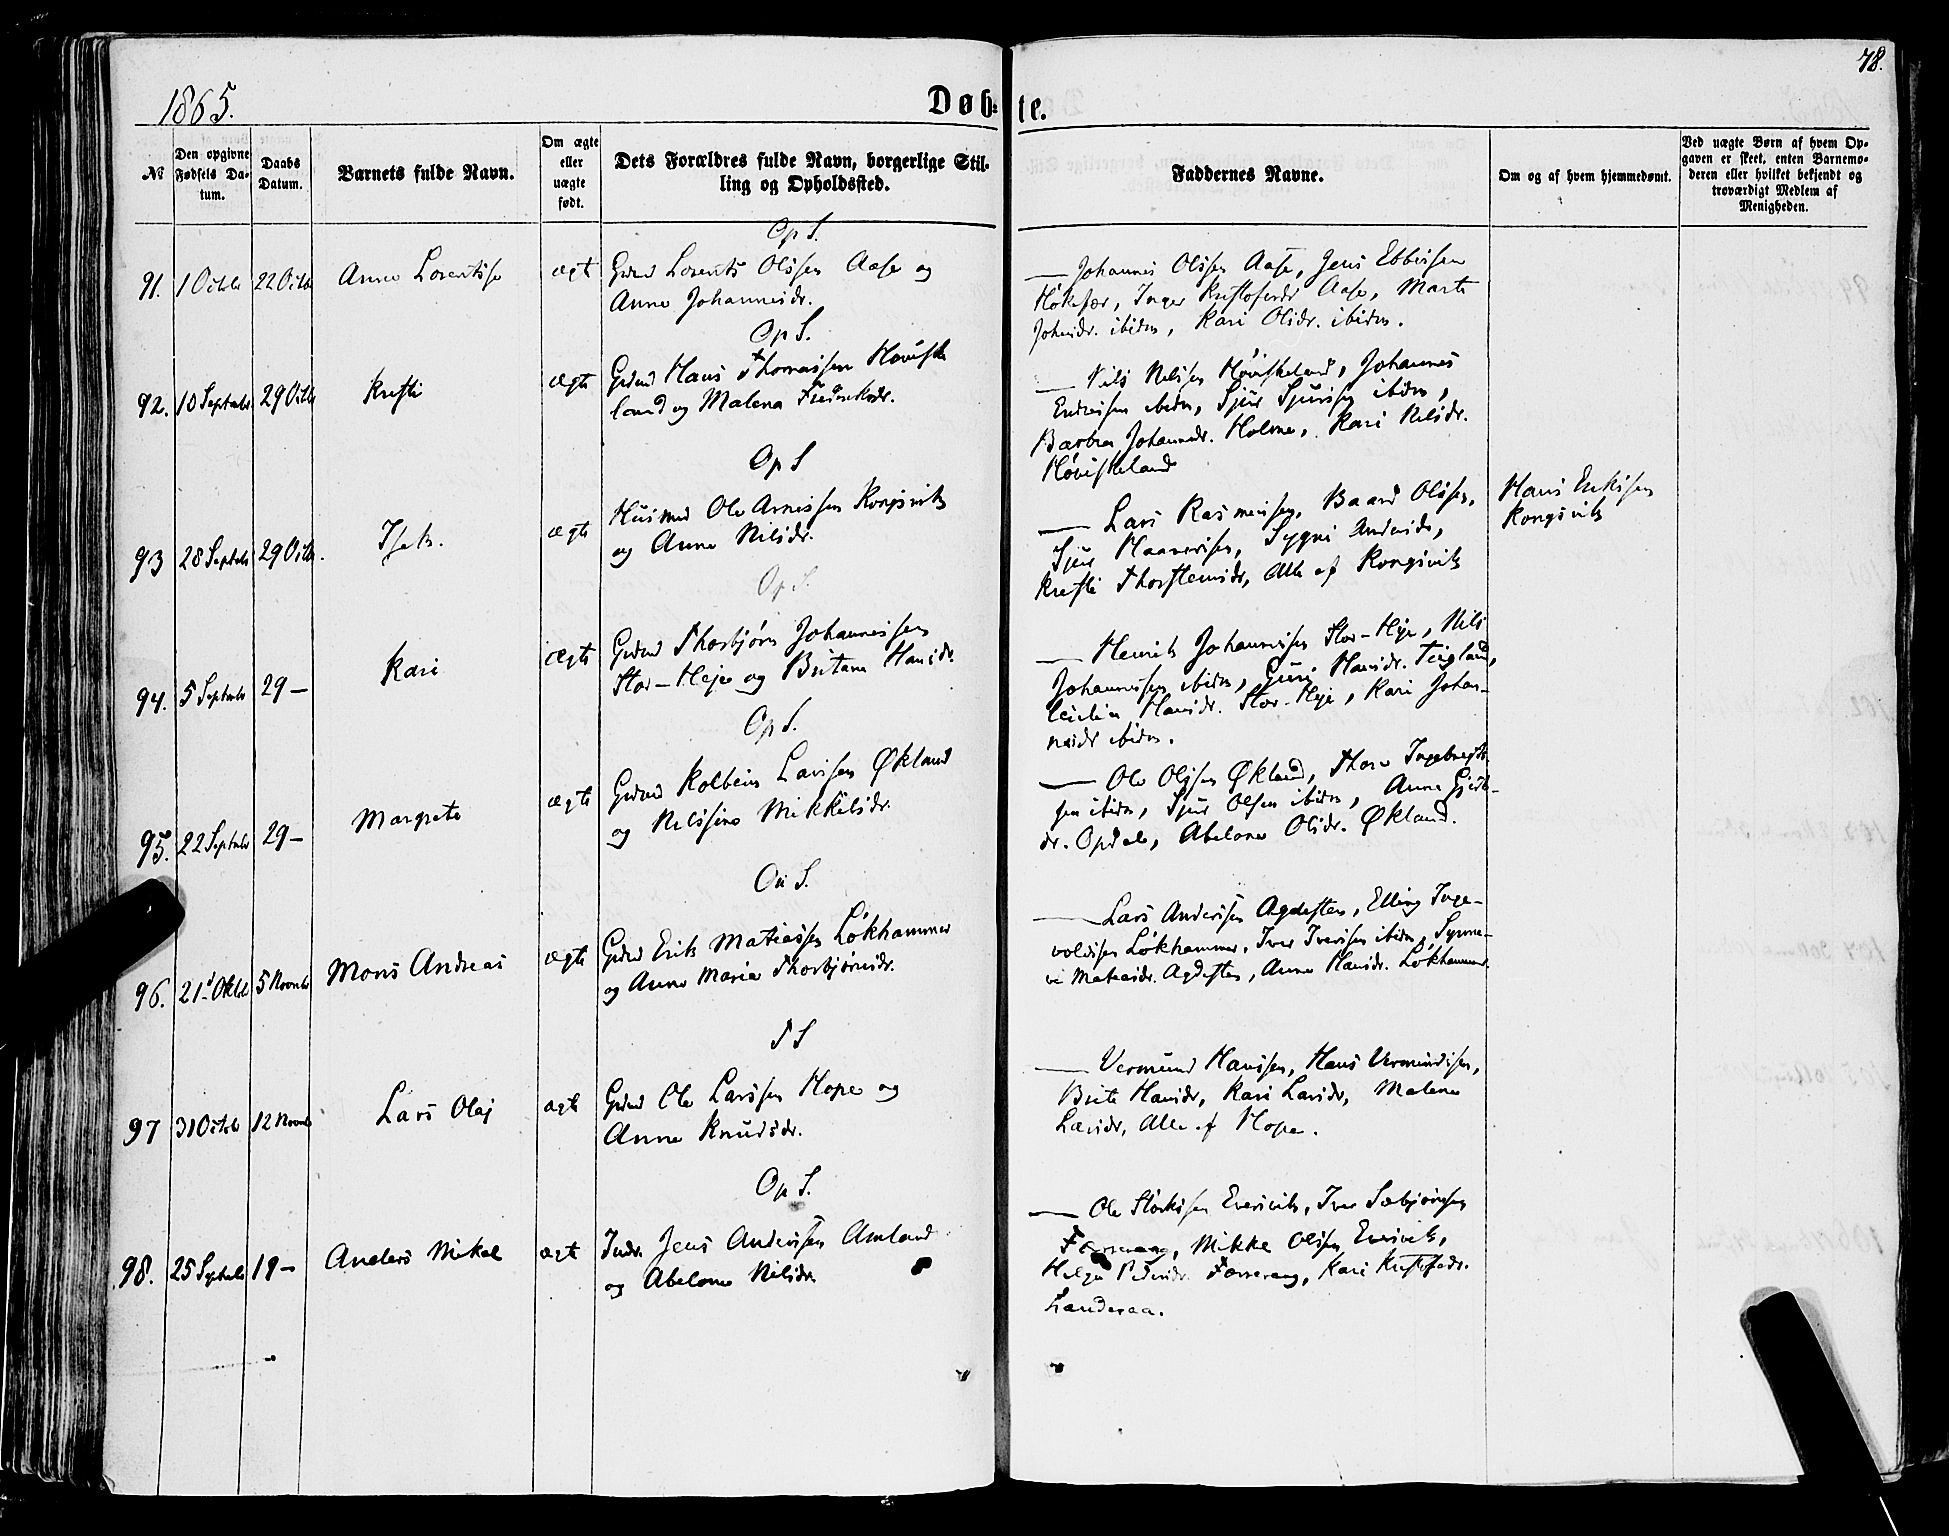 78.
1865.
Døb-te.
№
Den opgivne Fødsels Da-tum.
Daabs Datum.
Barnets fulde Navn.
Om ægte eller uægte født.
Dets Forældres fulde Navn, borgerlige Stil-
ling og Opholdssted.
Faddernes Navne.
Om og af hvem hjemmedøbt.
Ved uægte Børn af hvem Op-
gaven er skeet, enten Barnemo-
deren eller hvilket bekjendt og
troværdigt Medlem af
Menigheden.
Op S.
91. 1 Octob 22 Octb Anna Lorentse ægt Grdmd Lorents Olssen Aase og
Anna Johannesdr.
Johannes Olssen Aase, Jens Ebbessen
Inger Aase, Marta
ibidm, Kari Olsdr. ibidm.
Op S.
92. 10 Septmbr 29 Octb Kristi ægte Grdmd Hans Thomassen Høviske
land og Malena Fredriksdr.
Nils Nilssen Høviskeland, Johannes
ibidm, Sjur Sjurssen ibidm,
Barbra Johannsdr. Holme, Kari Nilsdr.
Høviskeland
Op S
93 28 Septmbr 29 Octb. Isak. ægte Husmd Ole Arnessen Kongsvik
og Anna Nilsdr.
Lars Rasmussen, Baard Olssen,
Sjur Sygni
Kristi Thorsteinsdr, Alle af Kongsvik
Hans Erikssen
Kongsvik
Op S.
94. 5 Septmbr 29 – Kari ægte Grdmd Thorbjørn Johannessen
Stor-Heje og Britana Hansdr.
Henrik Johannessen Stor-Heje, Nils
Johannessen ibidm, Guri Hansdr. Teigland,
Hansdr. Stor-Heje, Kari Johan-
nesdr ibidm.
Op S.
95. 22 Septmbr 29 – Margreta ægte Grdmd Kolbein Larssen Økland
og Nilssine Mikkelsdr.
Ole Olssen Økland, Thore Ingebregt-
sen ibidm, Sjur Olssen ibidm, Anna
dr. Opdal, Abelone Olsdr. Økland.
On S.
96. 21 Oktob 5 Novmb Mons Andreas ægte Grdmd Erik Matiassen Løkhammer
og Anna Maria Thorbjørnsdr.
Lars Anderssen Agdesten, Elling Inge-
voldssen Løkhammer, Iver Iverssen ibidm, Synne-
ve Matiasdr. Agdesten, Anna Hansdr. Løkhammer.
T S
97 31 Octob 12 Novmb Lars Olaj ægt Grdmd Ole Larssen Hope og
Anna Knudsdr.
Vermund Hanssen, Hans Vermundssen,
Brite Hansdr, Kari Larsdr, Malena
Larsdr, Alle af Hope.
Op S.
98. 25 Septmb 19 – Anders Mikal ægt Inder. Jens Anderssen Amland
og Abelone Nilsdr
Ole Evensvik, Iver Sæbjørnsen
Færevaag, Mikke Olssen Evensvik,
Helga Pedersdr. Færevaag, Kari
Landeraa.